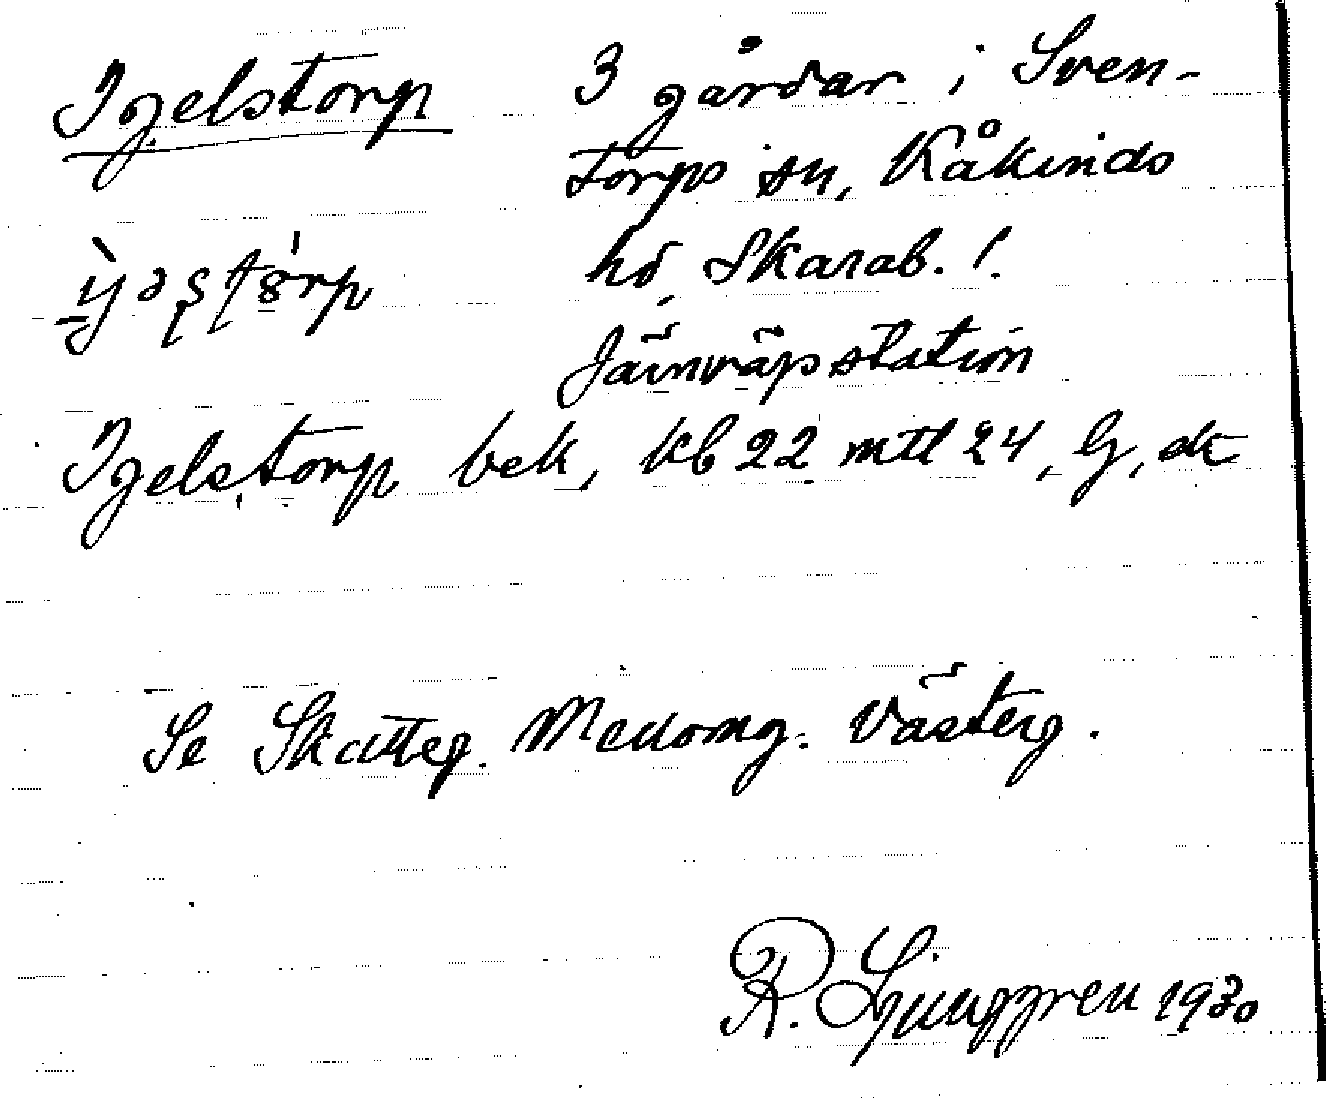 Igelstorp 3 gårdar i Sven-
torps sn, Kåkinds
hd, Skarab. l.
Järnvägsstation
Igelstorp bek, kb 22 mtl 24, G, ek
Se Skatteg. Medomg. Västerg.
R. Ljunggren 1930